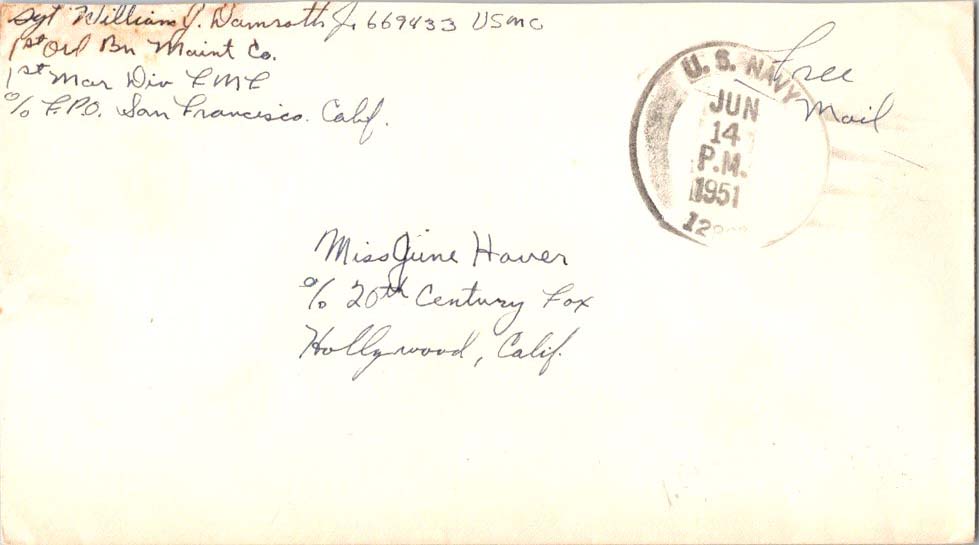 Sgt William J. Damroth Jr. 669433 USMC
1st Ord Bn Maint Co.
1st Mar Div FMF
c/o F.P.O. San Francisco. Calif.
Free
Mail
U. S. NAVY
JUN
14
P.M.
1951
Miss June Haver
c/o 20th Century Fox
Hollywood, Calif.